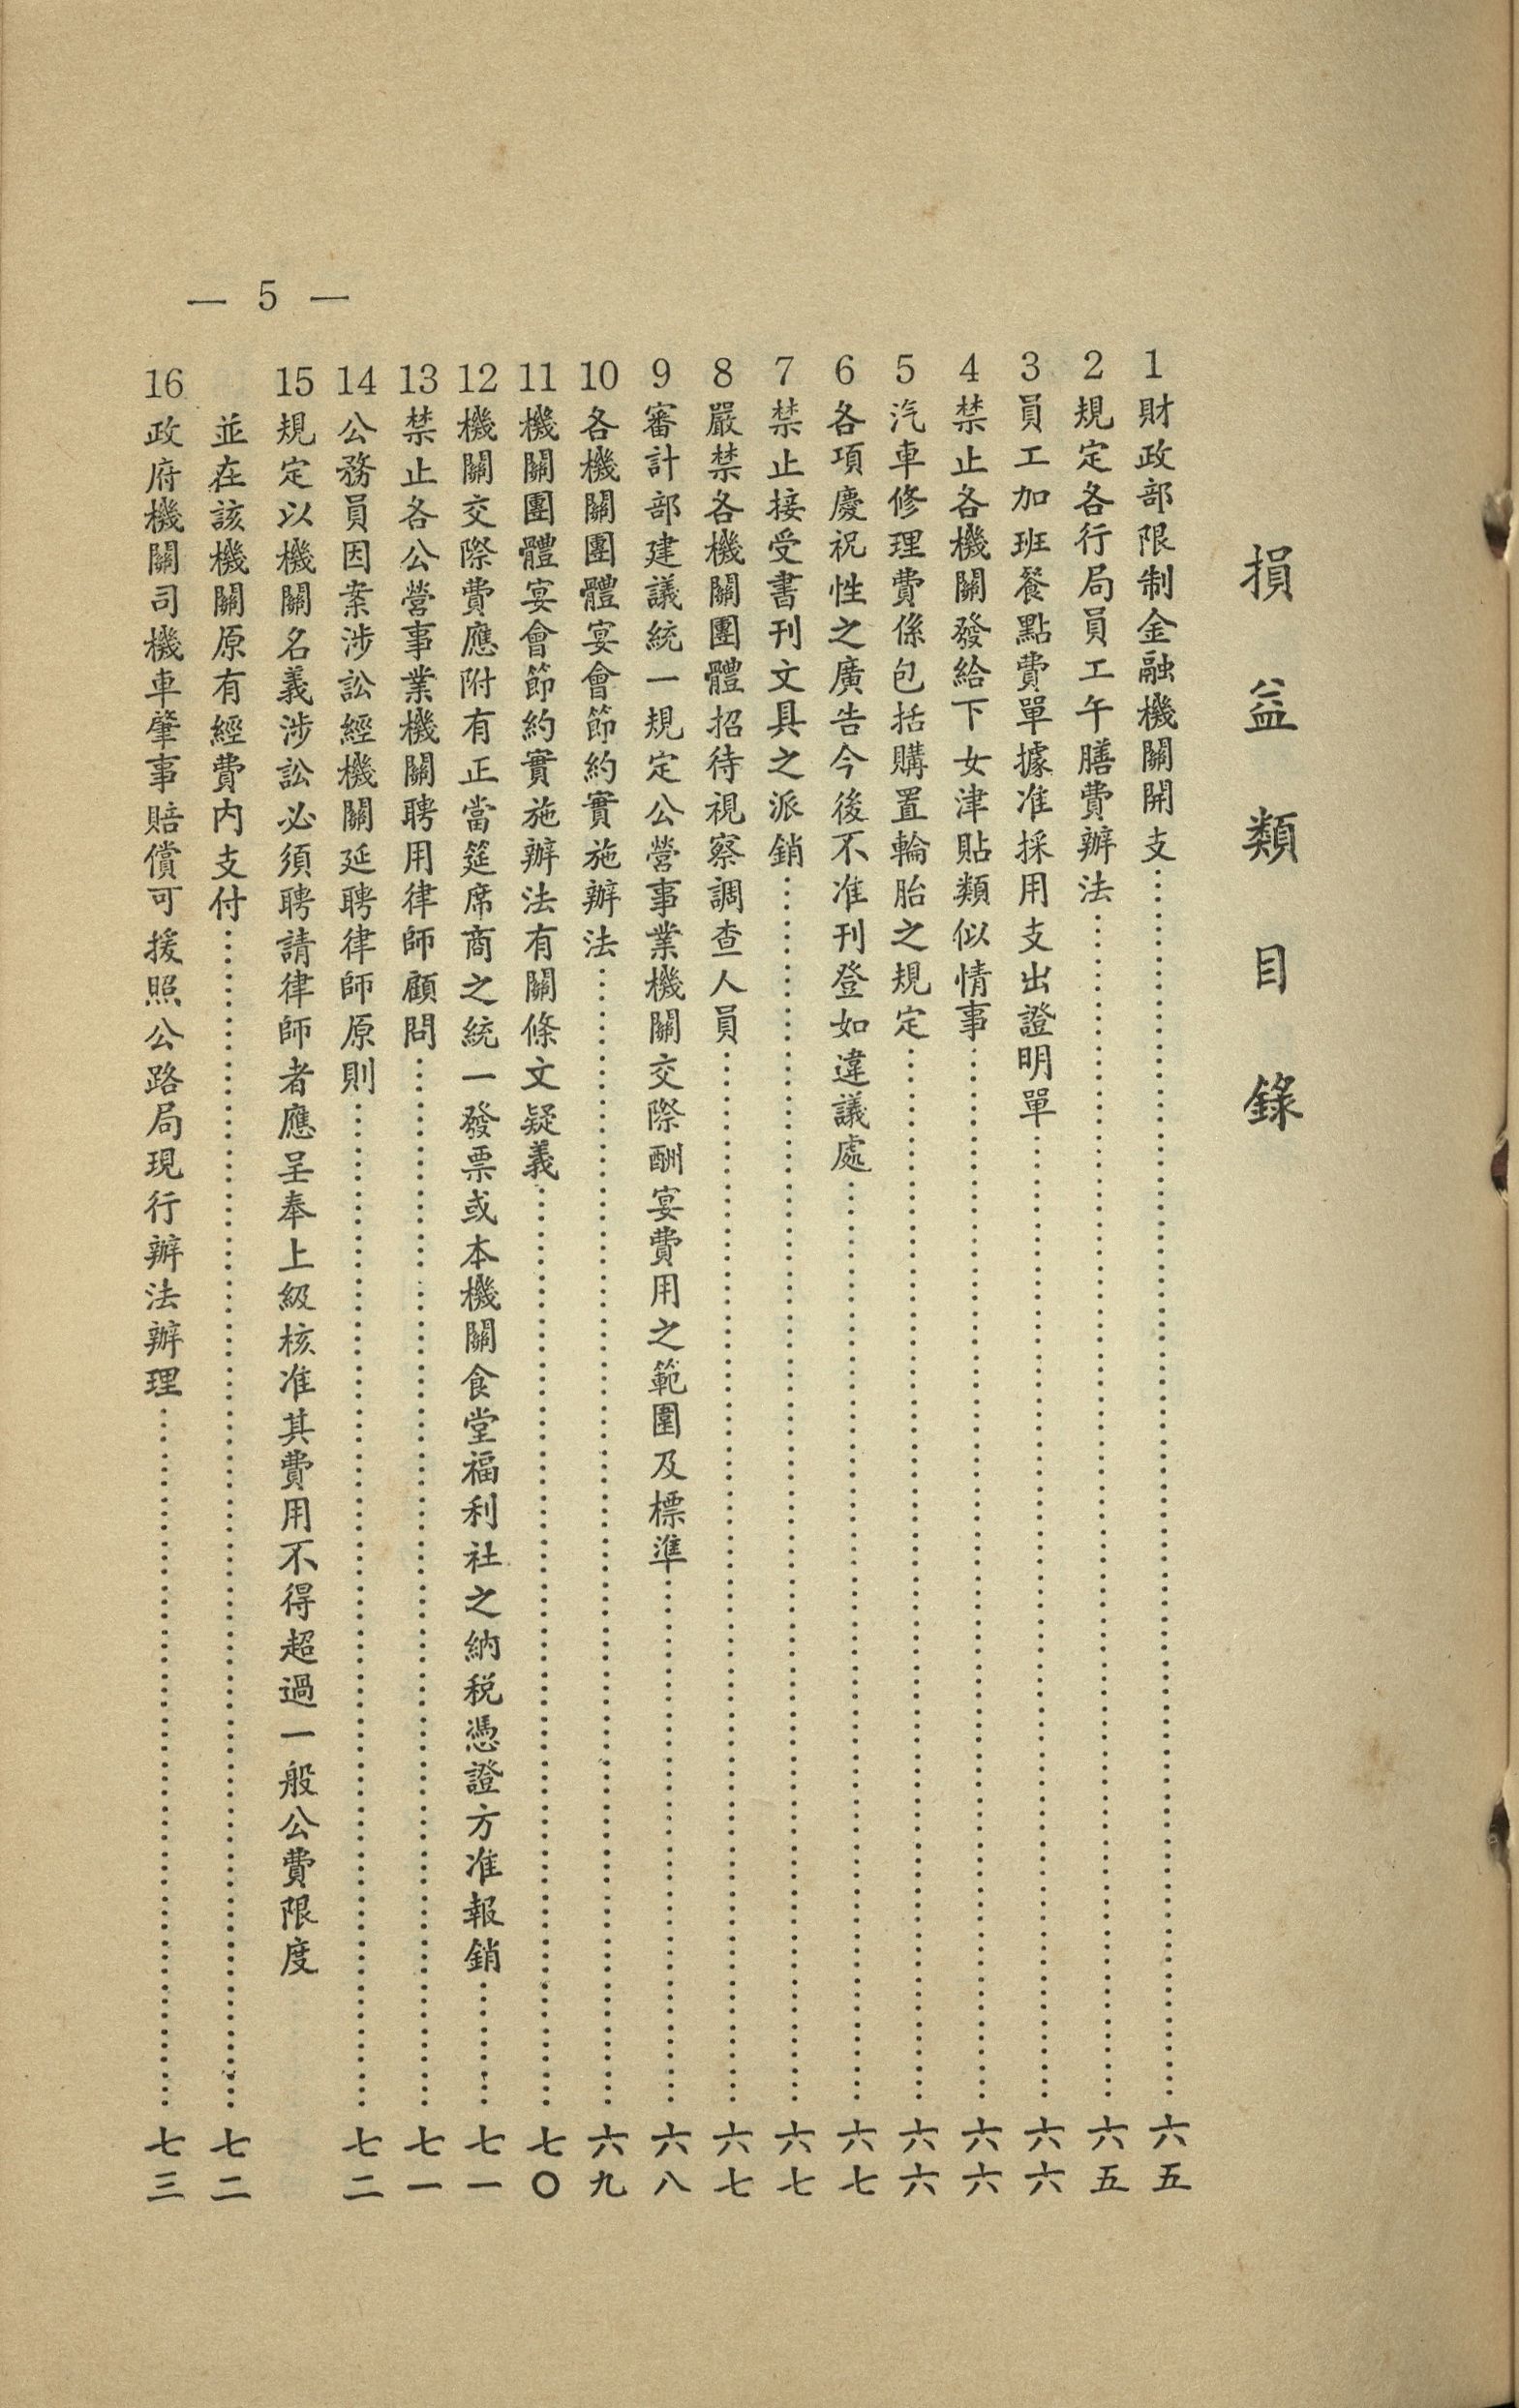 損益類目錄
1財政部限制金融機關開支……六五
2規定各行局員工午膳費辦法……六五
3員工加班餐點費單據准採用支出證明單……六六
4禁止各機關發給下女津貼類似情事……六六
5汽車修理費係包括購置輪胎之規定……六六
6各項慶祝性之廣告今後不准刊登如違議處……六七
7禁止接受書刊文具之派銷……六七
8嚴禁各機關團體招待視察調查人員……六七
9審計部建議統一規定公營事業機關交際酬宴費用之範圍及標準……六八
10各機關團體宴會節約實施辦法……六九
11機關團體宴會節約實施辦法有關條文疑義……七〇
12機關交際費應附有正當筵席商之統一發票或本機關食堂福利社之納稅憑證方准報銷……七一
13禁止各公營事業機關聘用律師顧問……七一
14公務員因案涉訟經機關延聘律師原則……七二
15規定以機關名義涉訟必須聘請律師者應呈奉上級核准其費用不得超過一般公費限度
並在該機關原有經費內支付……七二
16政府機關司機車肇事賠償可援照公路局現行辦法辦理……七三
— 5 —